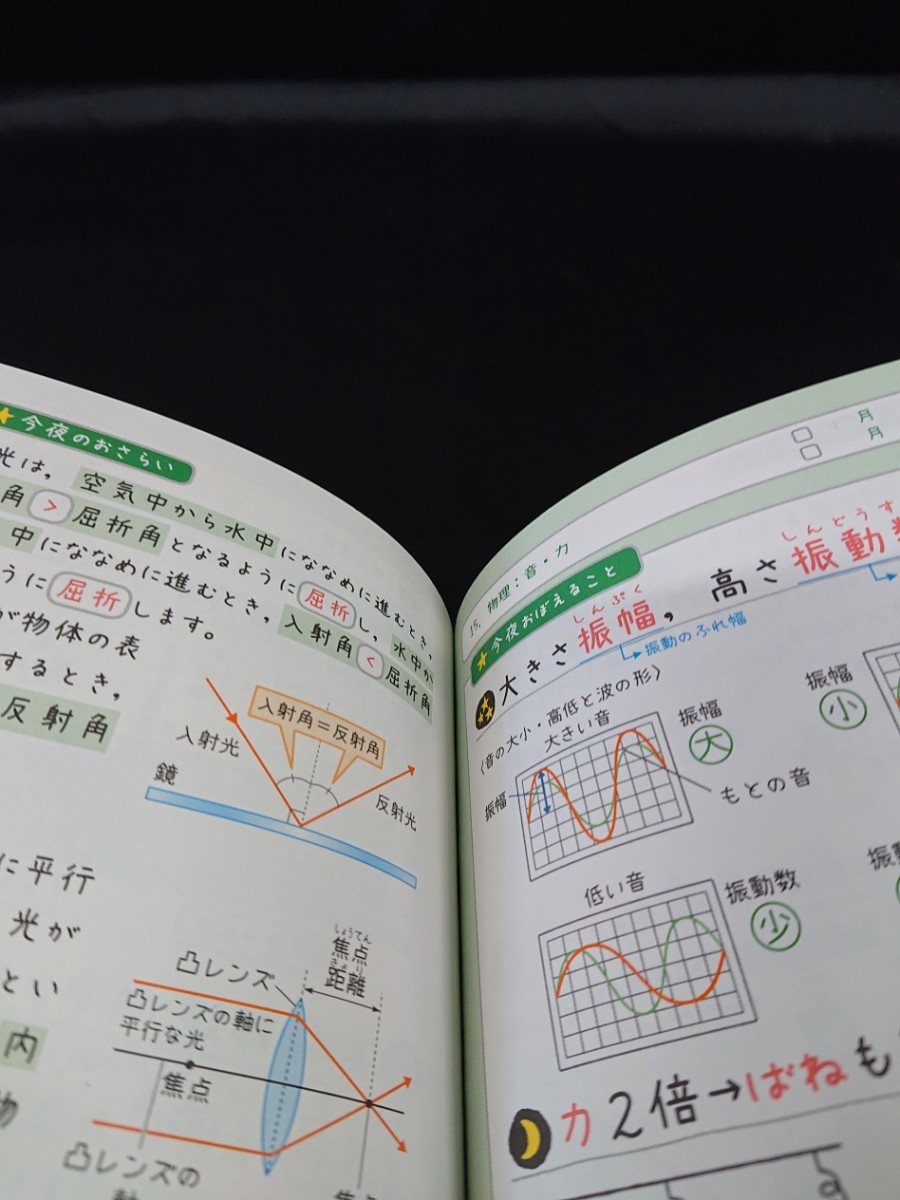 今夜のおさらい
光は，空気中から水中になななめに進むとき，
角＞屈折角となるように屈折し，水中か
中になななめに進むとき，入射角＜屈折角
うに屈折します。
が物体の表
するとき，
反射角
入射角＝反射角
入射光
鏡
反射光
に平行
光が
とい
内
物
しょうてん
焦点
きょり
距離
凸レンズ
凸レンズの軸に
平行な光
焦点
凸レンズの
月
月
15. 物理：音・力
今夜おぼえること
しんぷく
しんどうす
大きさ振幅，高さ振動
振動のふれ幅
〈音の大小・高低と波の形〉
大きい音
振幅
大
振幅
小
振幅
もとの音
低い音
振動数
少
振
力2倍→ばねも